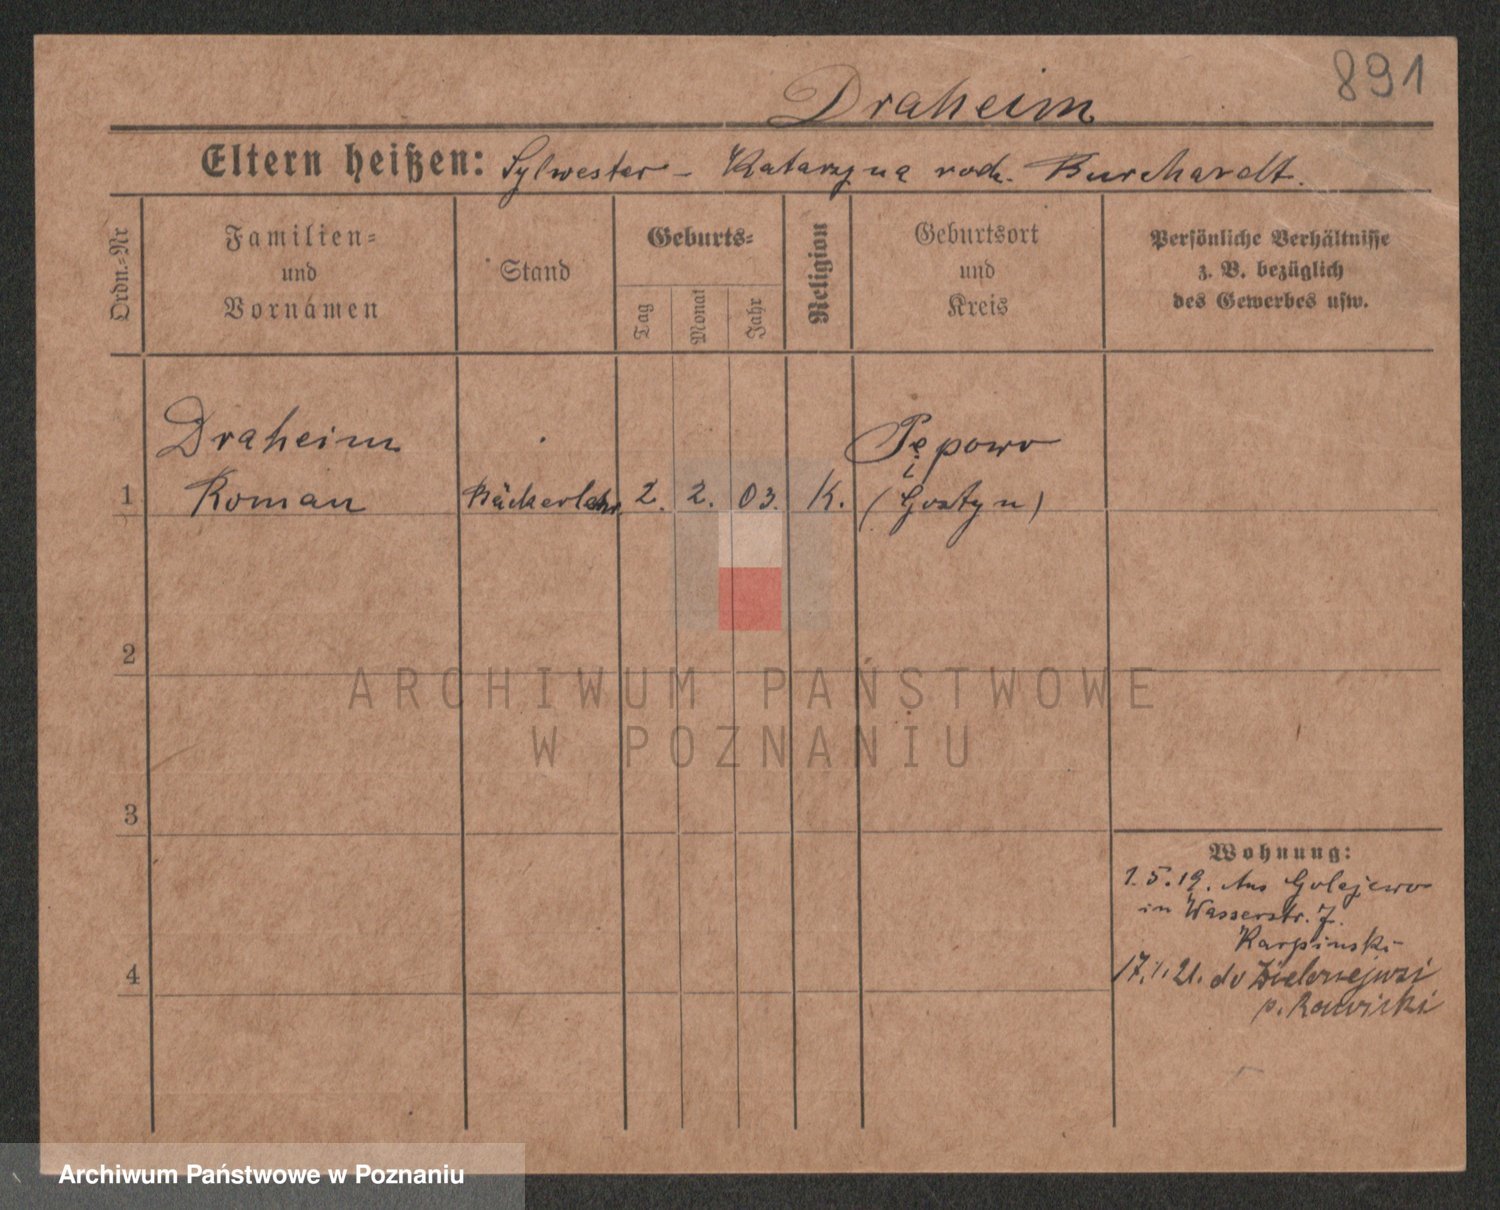 891
Draheim
Eltern heißen: Sylwester - Katarzyna rodz. Burchardt.
Ordn.-Nr
Familien-
und
Vornamen
Stand
Geburts-
Tag
Monat
Jahr
Religion
Geburtsort
und
Kreis
Persönliche Verhältnisse
z. B. bezüglich
des Gewerbes usw.
Draheim
Pępowo
1 Roman Bäckerlehr. 2. 2. 03. K. (Gostyn)
2
ARCHIWUM PAŃSTWOWE
W POZNANIU
3
Wohnung:
1.5.19. Aus Golejewo
in Wasserstr. 7.
Karpinski
4
17.1.21. do
p. Rawicki
Archiwum Państwowe w Poznaniu